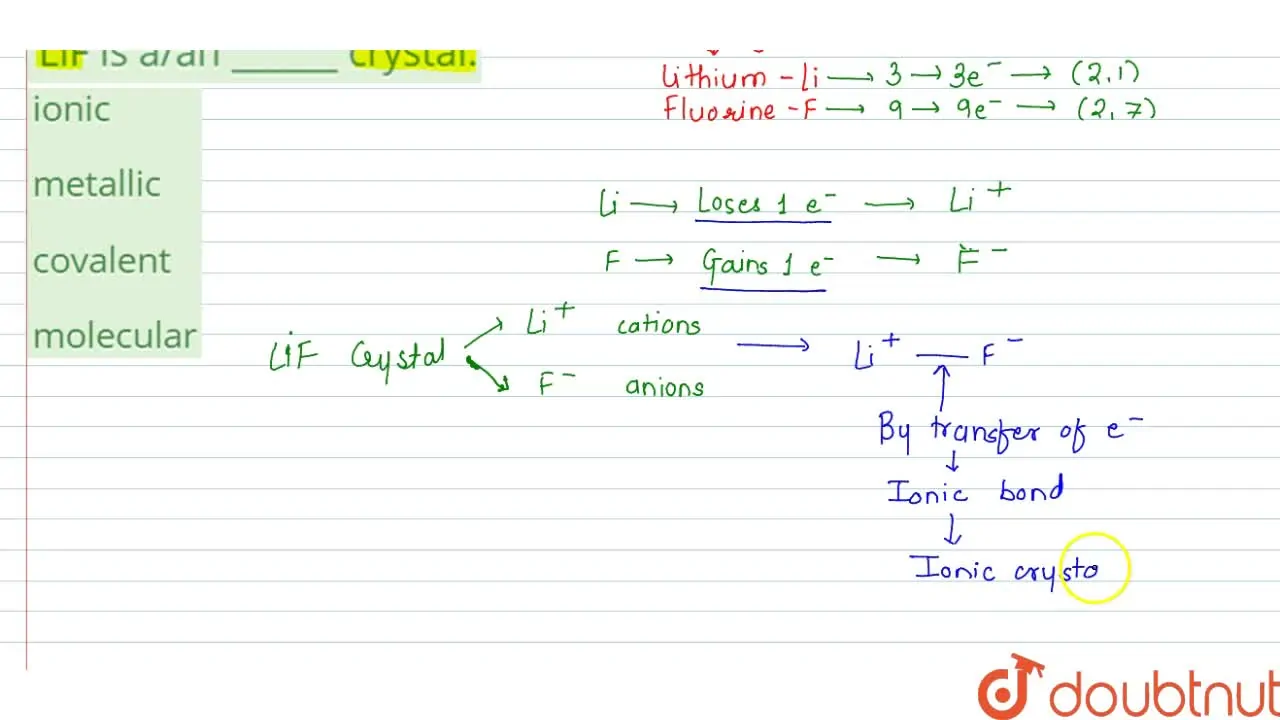 LiF is a/an ______ crystal.
ionic
metallic
covalent
molecular
Lithium - Li → 3 → 3e⁻ → (2,1)
Fluorine - F → 9 → 9e⁻ → (2,7)
Li → Loses 1 e⁻ → Li⁺
F → Gains 1 e⁻ → F⁻
LiF Crystal
Li⁺ cations
F⁻ anions
→ Li⁺ — F⁻
By transfer of e⁻
↓
Ionic bond
↓
Ionic crysta
doubtnut